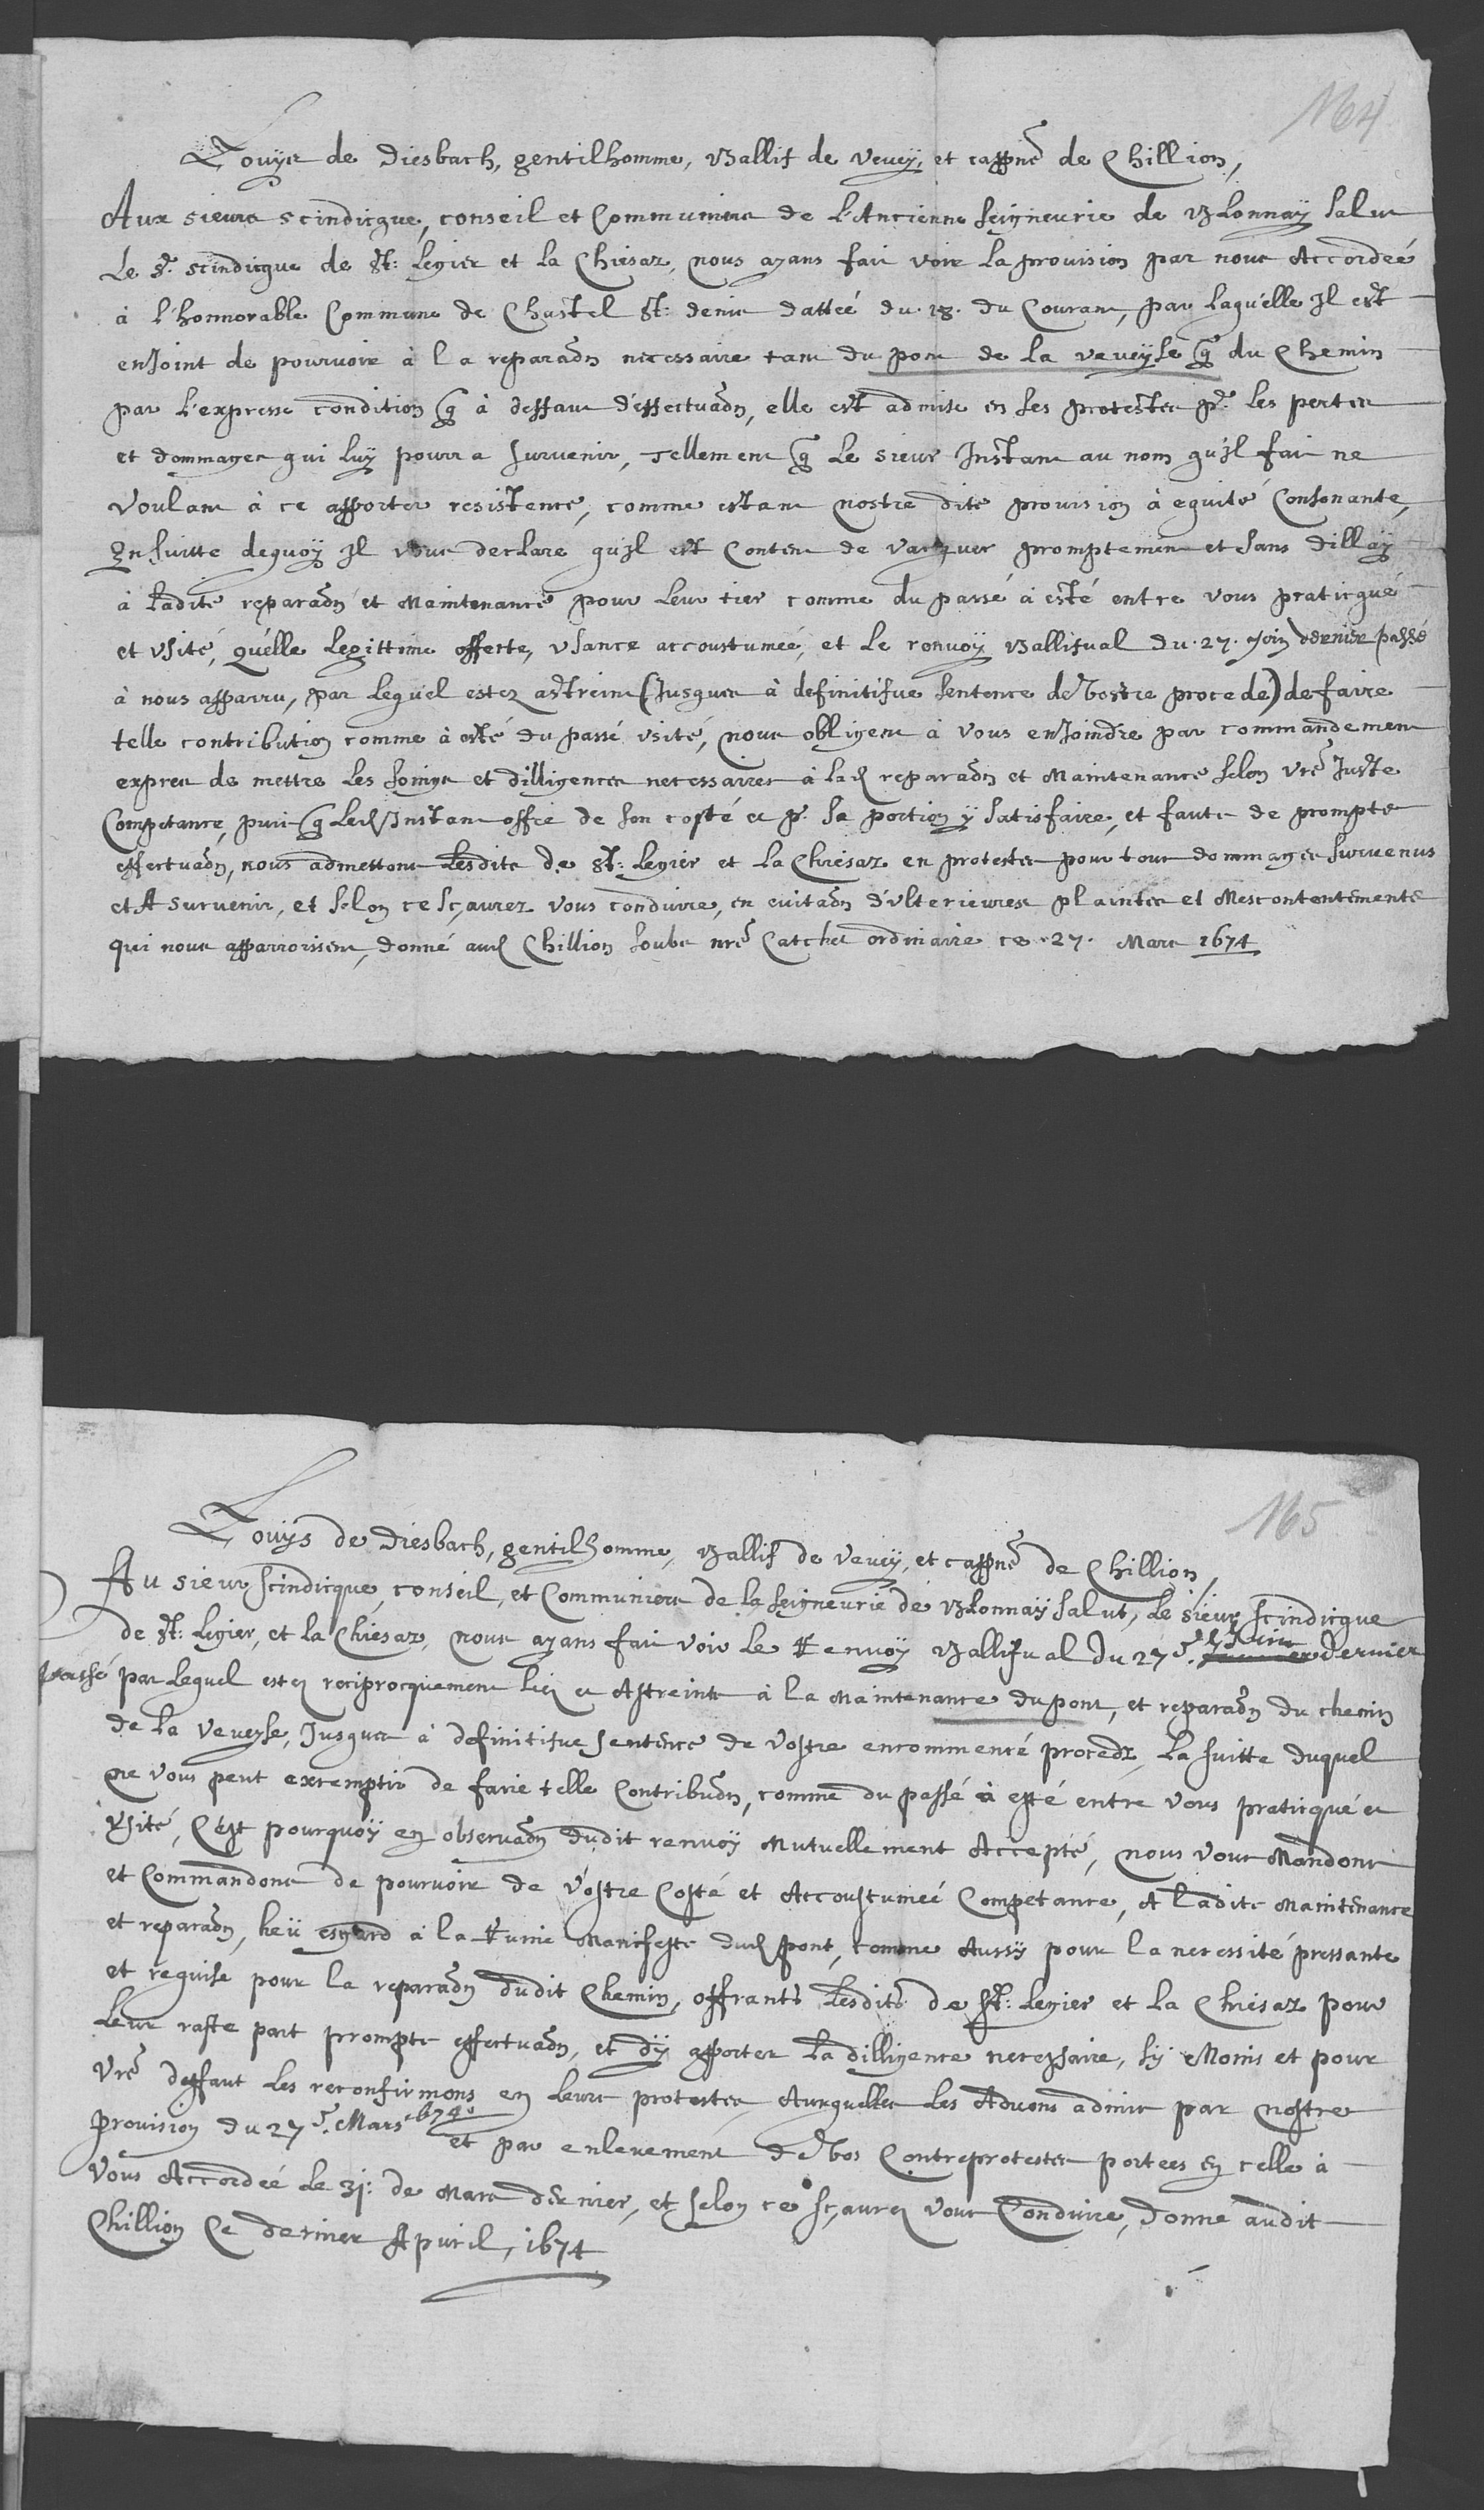 164
Louys de Diesbach, gentilhomme, Ballif de Vevey, et cappne de Chillion,
Aux sieurs scindicque, conseil et Communiers de L'Ancienne seigneurie de Blonnay salut
Le Sr. scindicque de St: Legier et la Chiesaz, nous ayans fait voir la provision par nous Accordeé
à l'honnorable Commune de Chastel St: denis datteé du .18. du Courant, par laquelle Il est
enjoint de pourvoir à la reparaôn necessaire tant du pont de la veveyse q̃ du Chemin
par l'expresse condition q̃ à deffaut d'effectuaôn, elle est admise en ses protestes pr. les pertes
et dommages qui luy pourra survenir, Tellement q̃ Le sieur Instant au nom qu'il fait ne
voulant à ce apporter resistence, comme estant nostre dite provision à equité Consonante,
Ensuitte dequoÿ Il vous declare qu'il est Content de vacquer promptement et sans dillaÿ
à ladite reparaôn et Maintenance pour leur tier comme du passé à esté entre vous praticqué
et vsité, quelle legittime offerte, vsance accoustumeé, et le renvoÿ Ballifual du .27. Join dernier passé
à nous apparru, par lequel estez astreins (Jusques à definitifue sentence de vostre procedé) de faire
telle contribution comme à esté du passé vsité, nous obligent à vous enjoindre par commandement
expres de mettre les soings et dilligences necessaires à lad. reparaôn et Maintenance selon vre Juste
Competance, puis q̃ led. Instant offre de son costé et pr. sa portion y satisfaire, et faute de prompte
effectuaôn, nous admettons lesdits de St: Legier et la Chiesaz en protestes pour tous dommages survenus
et A survenir, et selon ce sçaurez vous conduire, en euitaôn d'vlterieures plaintes et Mescontentements
qui nous apparroissent, donné aud. Chillion soubs nre Catchet ordinaire ce .27. Mars 1674
165
Louys de Diesbach, gentilhomme, Ballif de Vevey, et cappne de Chillion,
Au sieur scindicque, conseil, et Communiers de la seigneurie de Blonnaÿ salut, Le sieur scindicque
de St: Legier, et la Chiésaz, nous ayans fait voir le Renvoÿ Ballifual du 27e. Juin dernier
passé par lequel estez reciprocquement liez et Astreints à la Maintenance du pont, et reparaôn du chemin
de la Veveyse, Jusques à definitifue sentence de vostre encommencé procedz, la suitte duquel
ne vous peut exemptir de faire telle Contribuôn, comme du passé à esté entre vous praticqué et
vsité, C'est pourquoÿ en observaôn dudit renvoÿ Mutuellement Accepté, nous vous Mandons
et Commandons de pourvoir de vostre Costé et Accoustumeé Competance, A ladite Maintenance
et reparaôn, heü esgard à la Ruine Manifeste dud. pont, comme Aussÿ pour la necessité pressante
et requise pour la reparaôn dudit Chemin, offrants lesdits de St: Legier et la Chiesaz pour
leur raste part prompte effectuaôn, et d'ÿ apporter la dilligence necessaire, sy Moins et pour
vre deffaut les reconfirmons en leurs protestes, Auxquelles les Advons admis par nostre
provision du 27e. Mars 1674.
et par enlevement de vos Contreprotestes portees en celle à
Vous Accordeé le 31: de Mars dernier, et selon ce sçaurez vous Conduire, Donné audit
Chillion Ce dernier Apuril, 1674